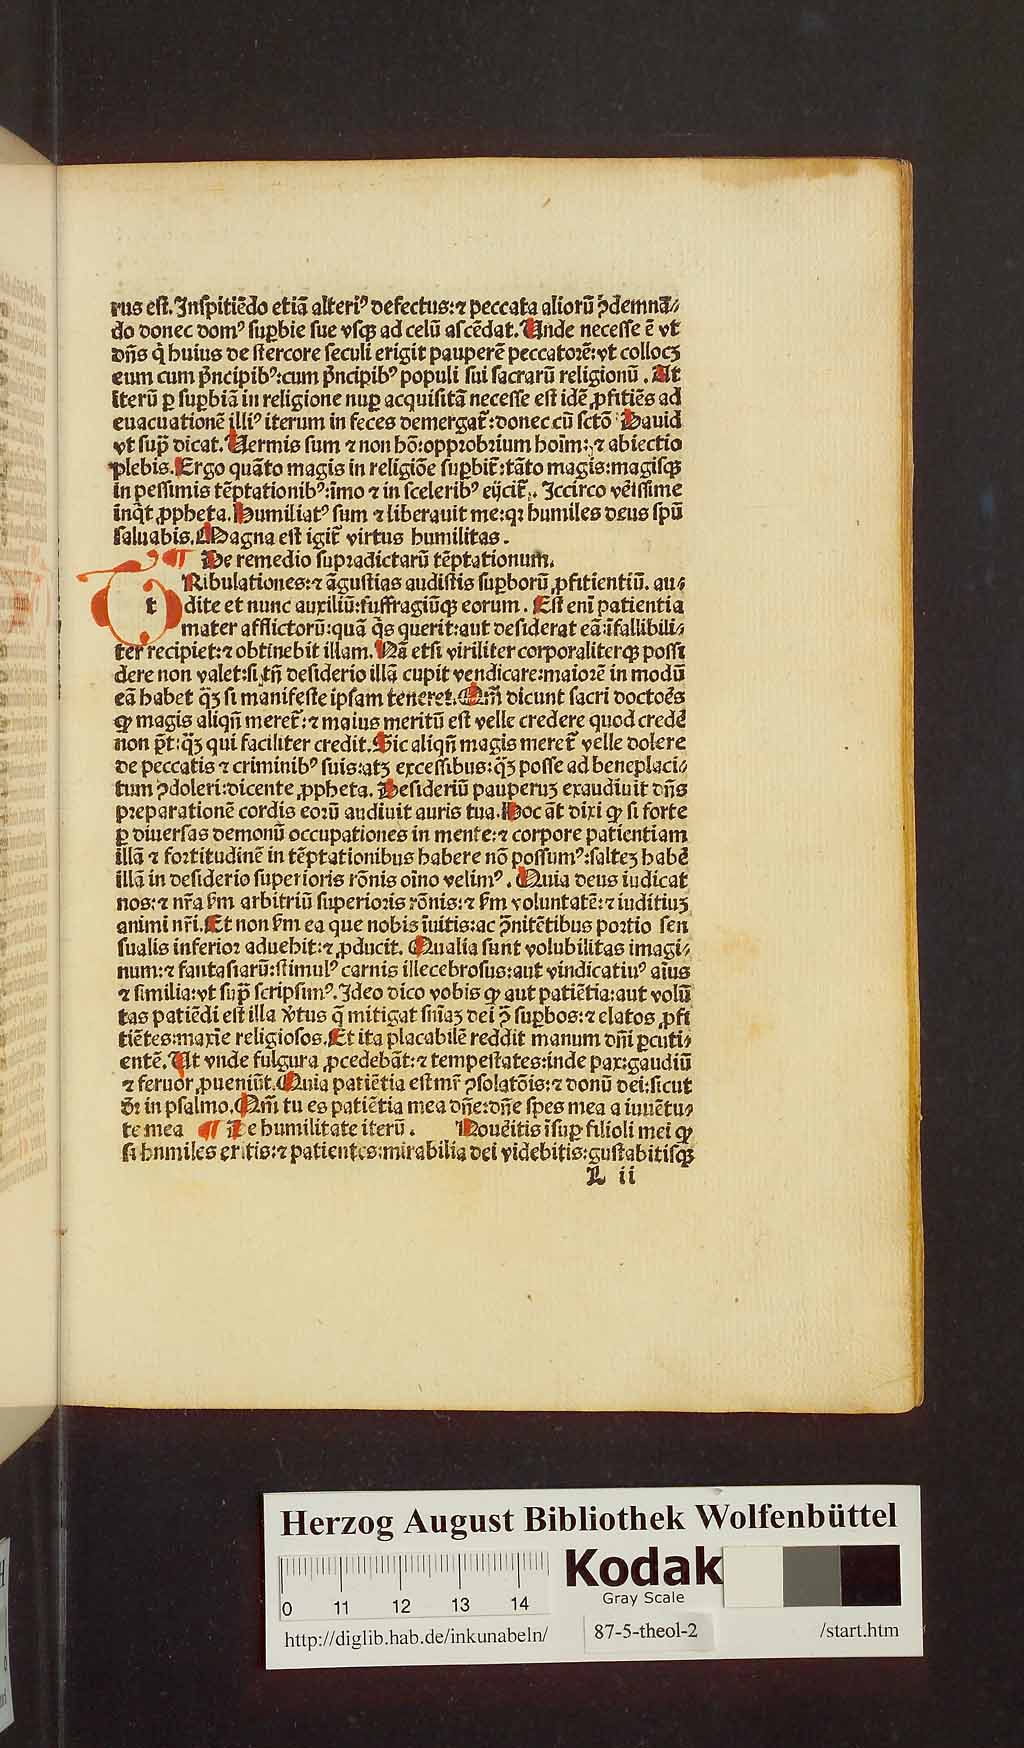 rus est. Inspitiēdo etiā alteriꝰ defectus:⁊ peccata aliorū ꝯdemnā⸗
do donec domꝰ suꝑbie sue vsqꝫ ad celū ascēdat. Unde necesse ē vt
dn̄s q̇ huius de stercore seculi erigit pauperē peccatorē:vt collocꝫ
eum cum pn̄cipibꝰ:cum pn̄cipibꝰ populi sui sacrarū religionū. At
iterū ꝑ suꝑbiā in religione nuꝑ acquisitā necesse est idē ꝓfitiēs ad
euacuationē illiꝰ iterum in feces demergat̄:donec cū sctō Dauid
vt sup̄ dicat. Uermis sum ⁊ non hō:opprobrium hoīm:⁊ abiectio
plebis. Ergo quāto magis in religiōe suꝑbit̄:tāto magis:magisqꝫ
in pessimis tēptationibꝰ:īmo ⁊ in sceleribꝰ eijcit̄. Iccirco vēissime
inq̇t ꝓpheta. Humiliatꝰ sum ⁊ liberauit me:qꝛ humiles deus spū
saluabis. Magna est igit̄ virtus humilitas.
¶ De remedio supradictarū tēptationum.
t RIbulationes:⁊ āgustias audistis suꝑborū ꝓfitientiū. au⸗
dite et nunc auxiliū:suffragiūqꝫ eorum. Est enī patientia
mater afflictorū:quā q̇s querit:aut desiderat eā:īfallibili⸗
ter recipiet:⁊ obtinebit illam. Nā etsi viriliter corporaliterqꝫ possi
dere non valet:si tn̄ desiderio illā cupit vendicare:maiorē in modū
eā habet q̄ꝫ si manifeste ipsam teneret. Qm̄ dicunt sacri doctoēs
ꝙ magis aliqn̄ meret̄:⁊ maius meritū est velle credere quod credē
non pt̄:q̄ꝫ qui faciliter credit. Sic aliqn̄ magis meret̄ velle dolere
de peccatis ⁊ criminibꝰ suis:atꝫ excessibus:q̄ꝫ posse ad beneplaci⸗
tum ꝯdoleri:dicente ꝓpheta. Desideriū pauperuꝫ exaudiuit dn̄s
preparationē cordis eorū audiuit auris tua. Hoc āt dixi ꝙ si forte
ꝑ diuersas demonū occupationes in mente:⁊ corpore patientiam
illā ⁊ fortitudinē in tēptationibus habere nō possumꝰ:salteꝫ habē
illā in desiderio superioris rōnis oīno velimꝰ. Quia deus iudicat
nos:⁊ nr̄a ẜm arbitriū superioris rōnis:⁊ ẜm voluntatē:⁊ iuditiuꝫ
animi nr̄i. Et non ẜm ea que nobis īuitis:ac ꝯnitētibus portio sen
sualis inferior aduehit:⁊ ꝓducit. Qualia sunt volubilitas imagi⸗
num:⁊ fantasiarū:stimulꝰ carnis illecebrosus:aut vindicatiuꝰ aīus
⁊ similia:vt sup̄ scripsimꝰ. Ideo dico vobis ꝙ aut patiētia:aut volū
tas patiēdi est illa v̄tus q̄ mitigat sn̄iaꝫ dei ꝯ̄ suꝑbos:⁊ elatos ꝓfi
tiētes:maxīe religiosos. Et ita placabilē reddit manum dn̄i ꝑcuti⸗
entē. Ut vnde fulgura ꝓcedebāt:⁊ tempestates:inde pax:gaudiū
⁊ feruor ꝓueniūt. Quia patiētia est mr̄ ꝯsolatōis:⁊ donū dei:sicut
dr̄ in psalmo. Qm̄ tu es patiētia mea dn̄e:dn̄e spes mea a iuuētu⸗
te mea ¶ De humilitate iterū. Nouēitis īsuꝑ filioli mei ꝙ
si humiles eritis:⁊ patientes:mirabilia dei videbitis:gustabitisqꝫ
L ii
Herzog August Bibliothek Wolfenbüttel
Kodak
Gray Scale
0 11 12 13 14
http://diglib.hab.de/inkunabeln/ 87-5-theol-2 /start.htm